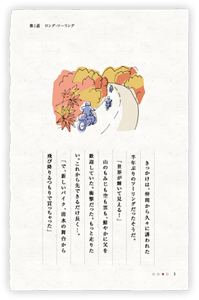 第1話 ロング・ツーリング
きっかけは、仲間から久々に誘われた
半年ぶりのツーリングだったそうだ。
「世界が輝いて見える!」
山のもみじも空も雲も、鮮やかに父を
歓迎していた。衝撃だった。もっと走りた
い。これから先できるだけ長く…。
「で、新しいバイク、清水の舞台から
飛び降りるつもりで買っちゃった」
1